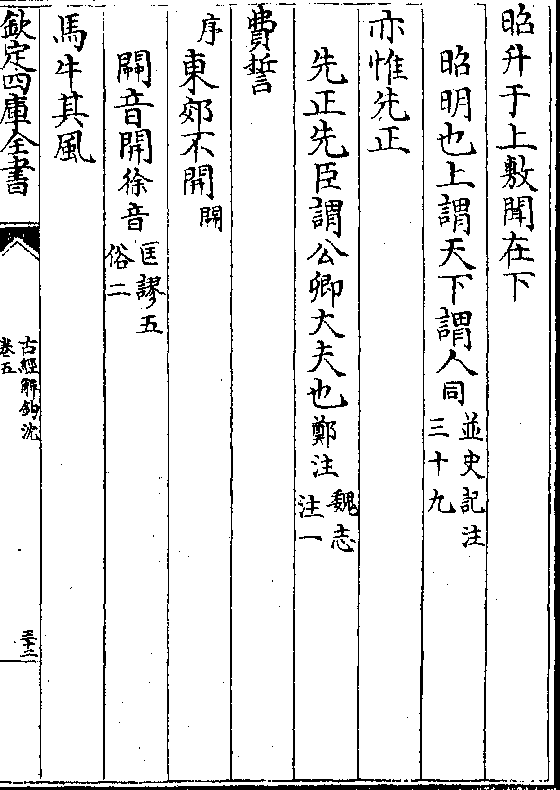 昭升于上敷聞在下
昭明也上謂天下謂人同並史記注三十九
亦惟先正
先正先臣謂公卿大夫也鄭注魏志注一
費誓
序東郊不開閞
閞音開徐音匡謬五俗二
馬牛其風
欽定四庫全書
古經解鉤沈
卷五